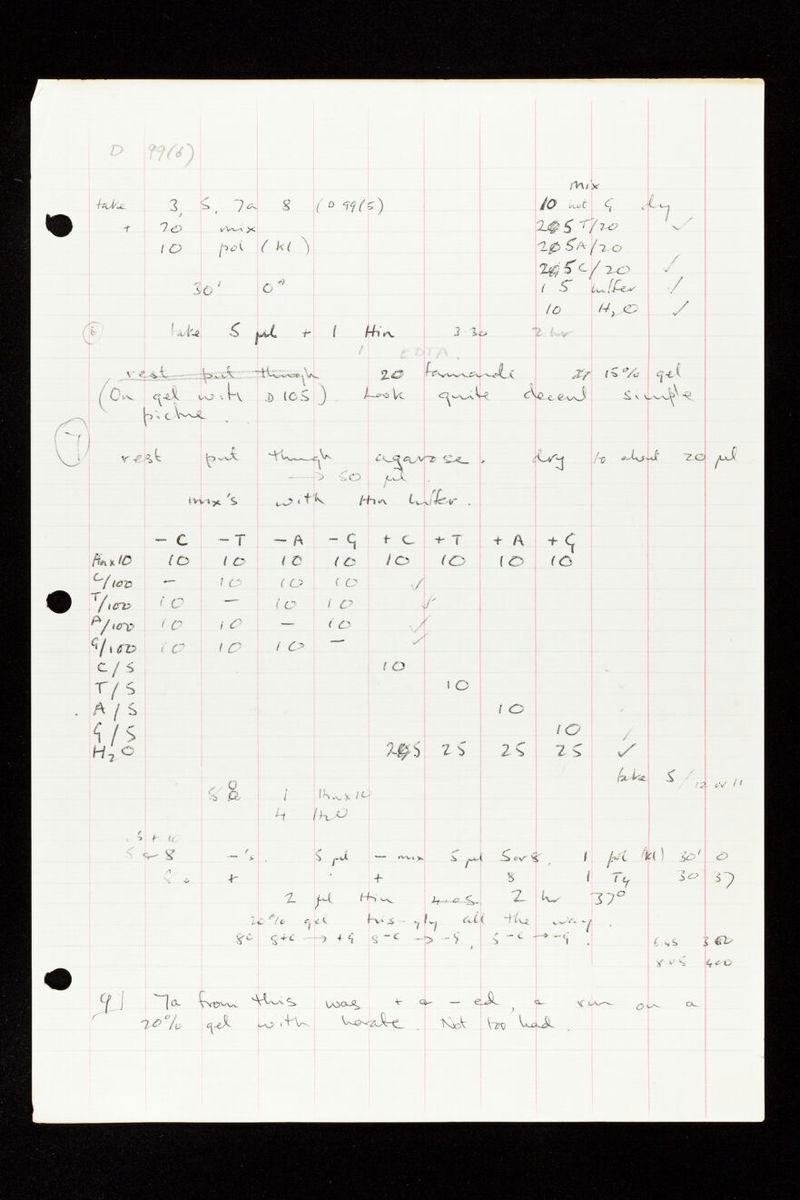 D 99(6)
mix
take 3, 5, 7a 8 (D 99(5) 10 hot G dry
+ 20 mix 5 T/20 ✓
10 pol (Kl) 5A/20
5 C/20 ✓
30' 0° 15 buffer ✓
10 H2O ✓
(6) take 5 µl + 1 Hin 3.30 2 hr
1 EDTA.
rest put through 20 formamide 15% gel
(On gel with D105). Look quite decent simple
picture.
(7) rest put through agarose. dry to about 20 µl
→ 50 µl.
mix's with Hin buffer.
- C - T - A - G + C + T + A + G
Hinx10 10 10 10 10 10 10 10 10
C/100 - 10 10 10 ✓
T/100 10 - 10 10 ✓
A/100 10 10 - 10 ✓
G/100 10 10 10 - ✓
C/5 10
T/5 10
A/5 10
G/5 10 ✓
H2O 25 25 25 25 ✓
take 5/12 or 11
8 1 Hinx10
4 H2O
5 + 10
5 or 8 -'s. 5 µl - mix 5 µl 5 or 8. 1 pol (Kl) 30' 0
+ + 8 1 T4 30 37
2 µl Hin 2 hr 37°
20% gel tris-gly all the way.
8c 8+c → +G 8-c → -G, 5-c → -G. 6.45 360
8.05 400
9] 7a from this was + & - ed, & run on a
20% gel with borate. Not too bad.